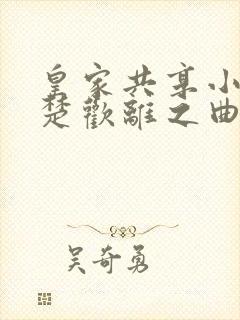 皇家共享小
楚歡離之曲
吴奇勇